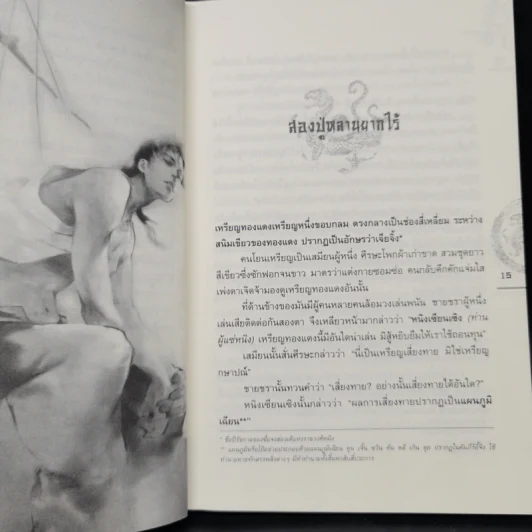 สองปู่หลานยากไร้
เหรียญทองแดงเหรียญหนึ่งขอบกลม ตรงกลางเป็นช่องสี่เหลี่ยม ระหว่าง
สนิมเขียวของทองแดง ปรากฏเป็นอักษรว่าเจียจิ้ง*
คนโยนเหรียญเป็นเสมียนผู้หนึ่ง ศีรษะโพกผ้าเก่าขาด สวมชุดยาว
สีเขียวซึ่งซักฟอกจนขาว มาตรว่าแต่งกายซอมซ่อ คนกลับคึกคักแจ่มใส
เพ่งตาเจิดจ้ามองดูเหรียญทองแดงอันนั้น
ที่ด้านข้างของมันมีผู้คนหลายคนล้อมวงเล่นพนัน ชายชราผู้หนึ่ง
เล่นเสียติดต่อกันสองตา จึงเหลียวหน้ามากล่าวว่า "หนิงเซียนเซิง (ท่าน
ผู้แซ่หนิง) เหรียญทองแดงนี้มีอันใดน่าเล่น มิสู้หยิบยืมให้เราใช้ถอนทุน"
เสมียนนั้นสั่นศีรษะกล่าวว่า "นี่เป็นเหรียญเสี่ยงทาย มิใช่เหรียญ
กษาปณ์"
ชายชรานั้นทวนคำว่า "เสี่ยงทาย? อย่างนั้นเสี่ยงทายได้อันใด?"
หนิงเซียนเซิงนั้นกล่าวว่า "ผลการเสี่ยงทายปรากฏเป็นแผนภูมิ
เฉียน**"
15